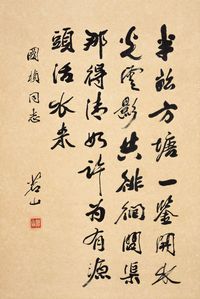 半畝方塘一鑒開天
光雲影共徘徊問渠
那得清如許為有源
頭活水來
國楨同志
茗山